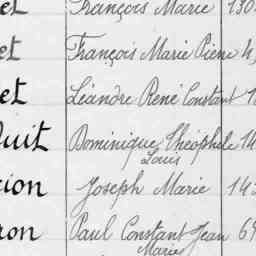 et François Marie 130
et François Marie Pierre 4
et Léandre René Constant 1
uit Dominique Théophile 14
Louis
ion Joseph Marie 143
ron Paul Constant Jean 69
Marie